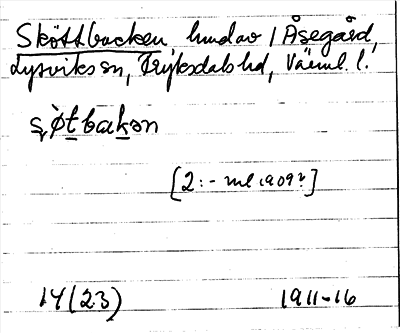 Sköttbacken, hmd av 1 Åsegård,
Lysviks sn, Fryksdals hd, Värml. l.
s̩øt bakən
[2:- ml 1909?]
14(23) 1911-16